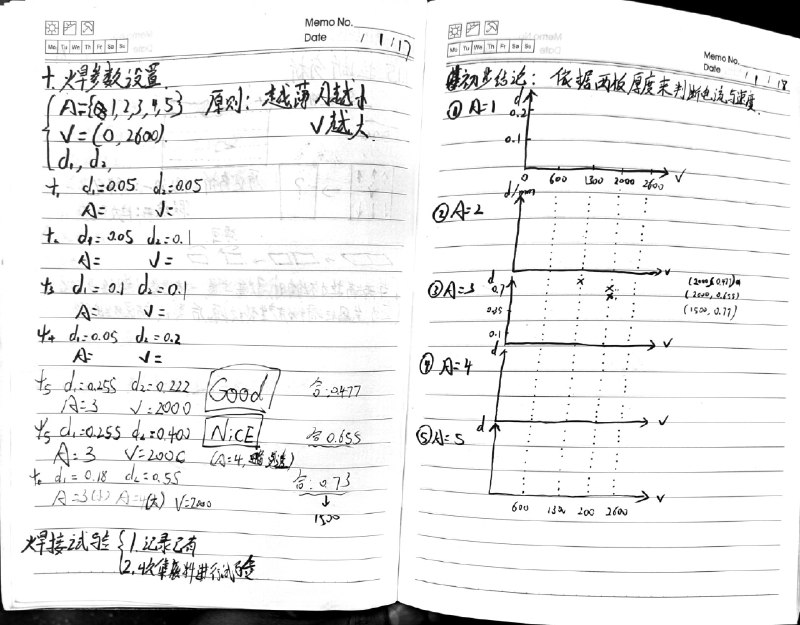 Memo No.
Date 1/1/17
Mo Tu We Th Fr Sa Su
十. 火焊参数设置.
A={0,1,2,3,4,5} 原则: 越薄 A越小
V=(0,2600). V越大.
d₁, d₂,
t₁ d₁=0.05 d₂=0.05
A= V=
t₂ d₁=0.05 d₂=0.1
A= V=
t₃ d₁=0.1 d₂=0.1
A= V=
t₄ d₁=0.05 d₂=0.2
A= V=
t₅ d₁=0.255 d₂=0.222 Good 合:0.477
A=3 V=2000
t₅ d₁=0.255 d₂=0.400 NiCE 合 0.655
A=3 V=2000 (A=4,
t₆ d₁=0.18 d₂=0.55 合:0.73
A=3(小) A=4(大) V=2000 ↓
1500
焊接试验 { 1.记录已有
2.收集废料进行试验
Memo No.
Date 1/1/18
Mo Tu We Th Fr Sa Su
初步结论: 依据两板厚度来判断电流与速度.
① A=1 d
0.2
0.1
0 600 1300 2000 2600 V
② A=2 d/mm
V
③ A=3 d
0.7 x x x (2000,0.477)
0.1 (2000,0.655)
(1500,0.77)
V
④ A=4 d
V
⑤ A=5 d
V
600 1300 200 2600